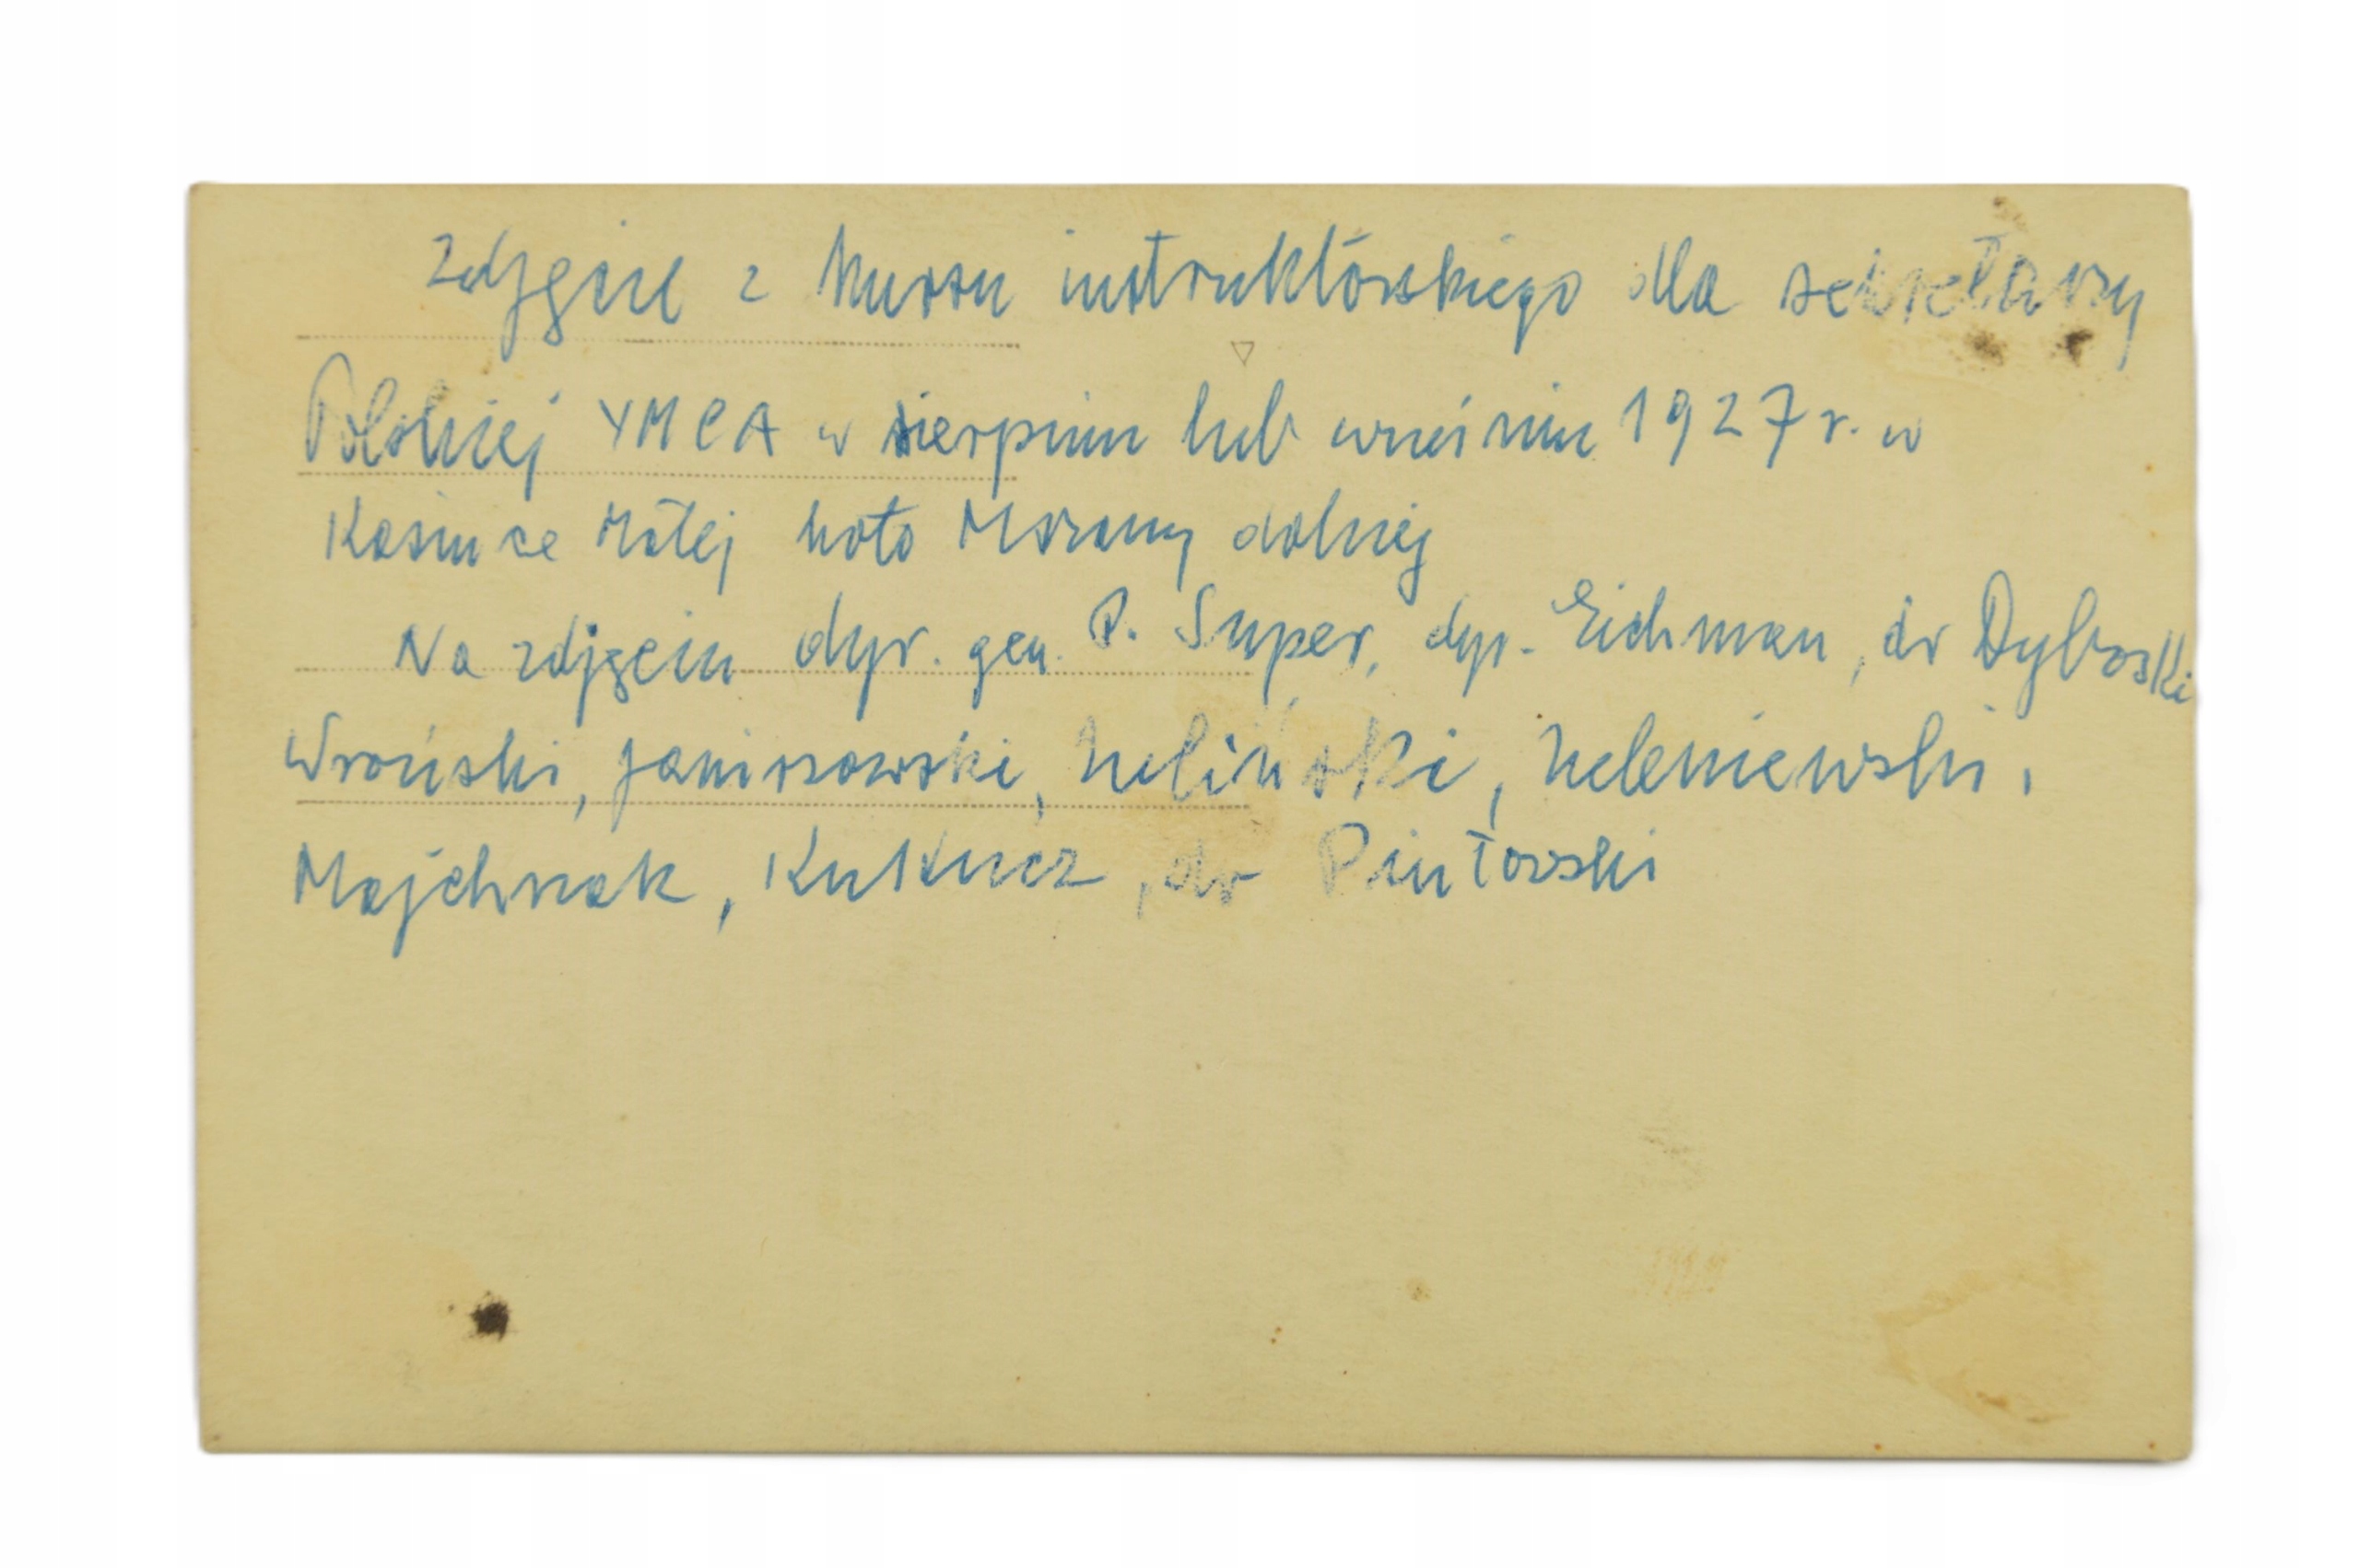 Zdjęcie z kursu instruktorskiego dla sekretarzy
Polskiej YMCA w sierpniu lub wrześniu 1927 r. w
Kasince Małej koło Mszany dolnej
Na zdjęciu dyr. gen. P. Super, dyr. Eichman, dr Dyboski
Wroński, Janiszowski,
Majchrzak, Kukucz, dr Piotrowski